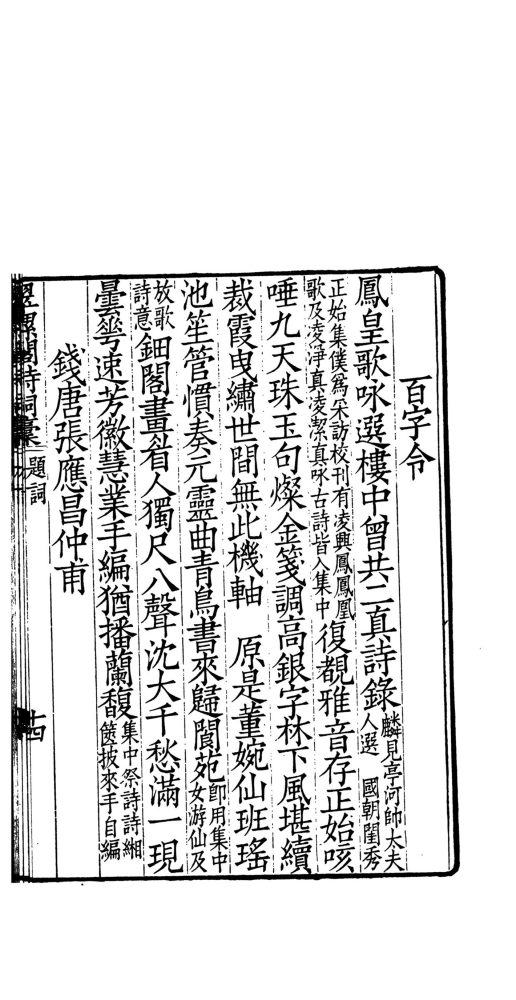 百字令
鳳皇歌咏選樓中曾共二真詩錄麟見亭河帥太夫人選　國朝閨秀
正始集僕爲采訪校刊有凌興鳳鳳凰歌及凌淨真凌潔真咏古詩皆入集中復覩雅音存正始咳
唾九天珠玉句燦金箋調高銀字林下風堪續
裁霞曳繡世間無此機軸　原是董婉仙班瑤
池笙管慣奏元靈曲青鳥書來歸閬苑卽用集中女游仙及
放歌詩意鈿閣畫省人獨尺八聲沈大千愁滿一現
曇𠌶速芳徽慧業手編猶播蘭馥集中祭詩詩緗篋披來手自編
錢唐張應昌仲甫
閣詩詞彙　題詞　十四